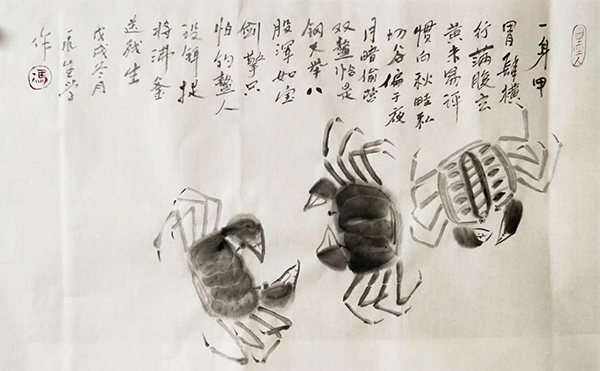 一身甲
胄肆横
行满腹玄
黄未易评
惯向秋畦私
切谷偏于夜
月暗偷营
双螯恰是
钢叉举八
股浑如宝
剑擎只
怕钓鳌人
设饵捉
将沸釜
送残生
戊戌冬月
生学
作
馮